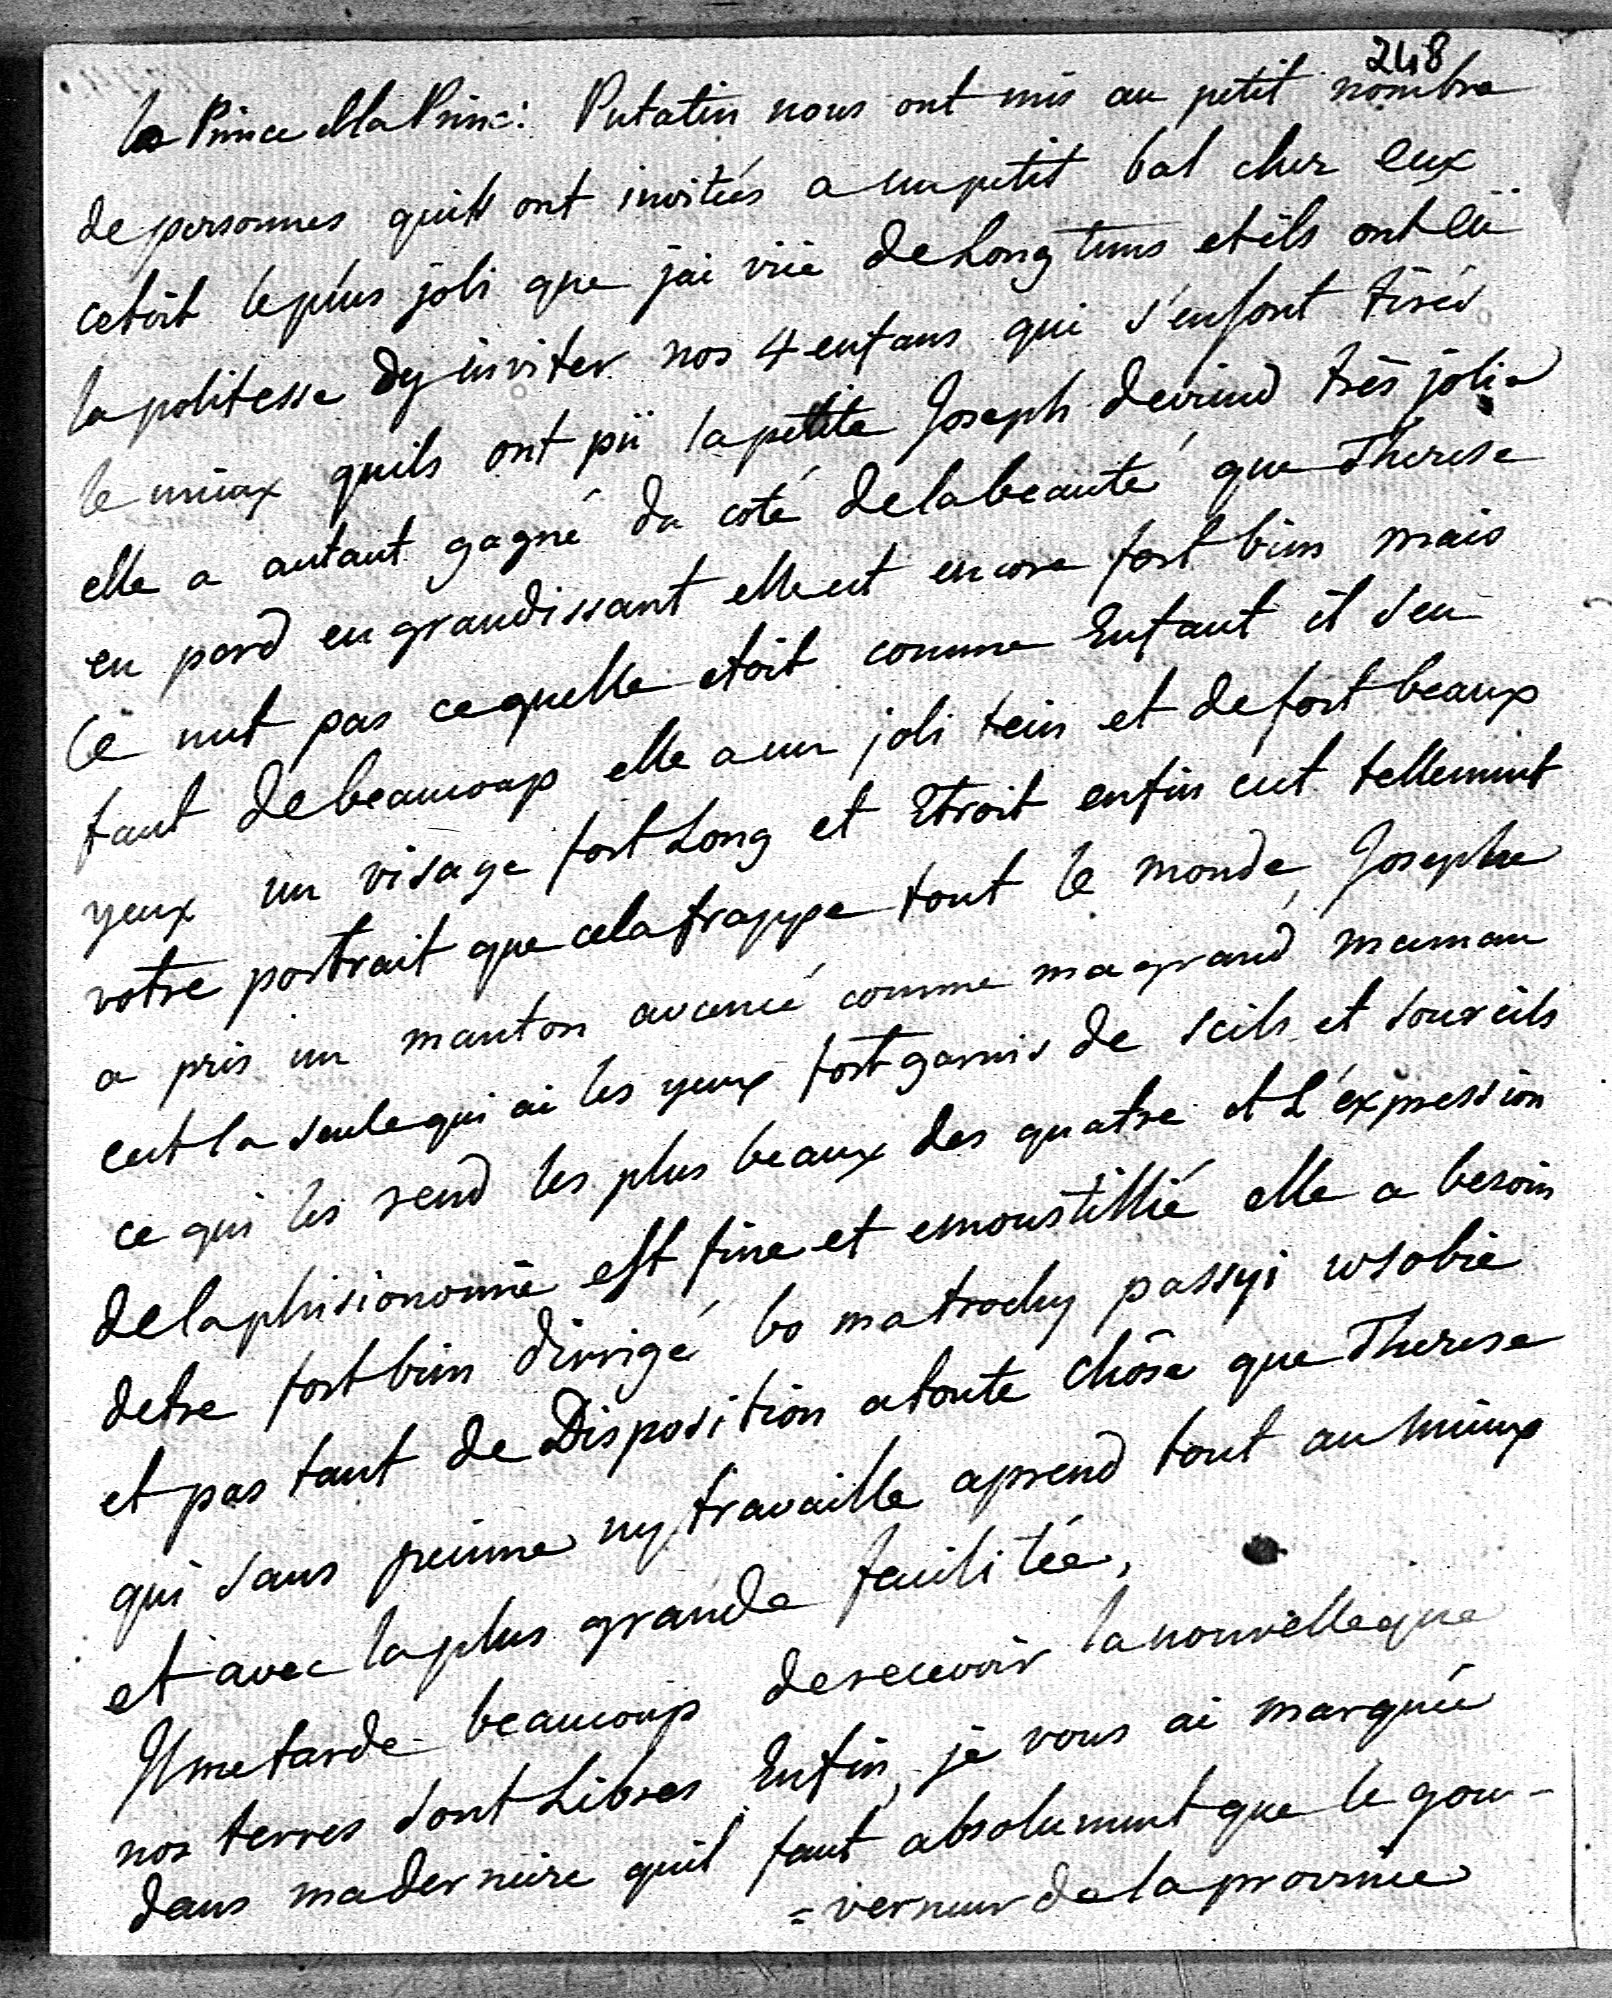 248
le Prince et la Princ: Putatin nous ont mis au petit nombre
de personnes quils ont invitées a un petit bal chez eux
cetoit le plus joli que jai vüe de Long tems et ils ont eü
la politesse dy inviter nos 4 enfans qui s'en sont tirés
le mieux quils ont pü la petite Joseph deviend très jolie
elle a autant gagné du coté de la beauté que Therese
en perd en grandissant elle est encore fort bien mais
Ce nest pas ce quelle etoit comme Enfant il s'en
faut de beaucoup elle a un joli tein et de fort beaux
yeux un visage fort Long et Etroit enfin cest tellement
votre portrait que cela frappe tout le monde, Josephe
a pris un manton avancé comme ma grand maman
cest la seule qui ai les yeux fort garnis de scils et sourcils
ce qui les rend les plus beaux des quatre et L'éxpression
de la phisionomie est fine et emoustillié elle a besoin
detre fort bien dirrigé bo ma trochy passyi w sobie
et pas tant de Disposition a toute chôse que Therese
qui sans peinne ny travaille aprend tout au mieux
et avec la plus grande facilitée,
Il me tarde beaucoup de recevoir la nouvelle que
nos terres sont Libres Enfin, je vous ai marquée
dans ma derniere quil faut absolument que le gou-
=verneur de la province